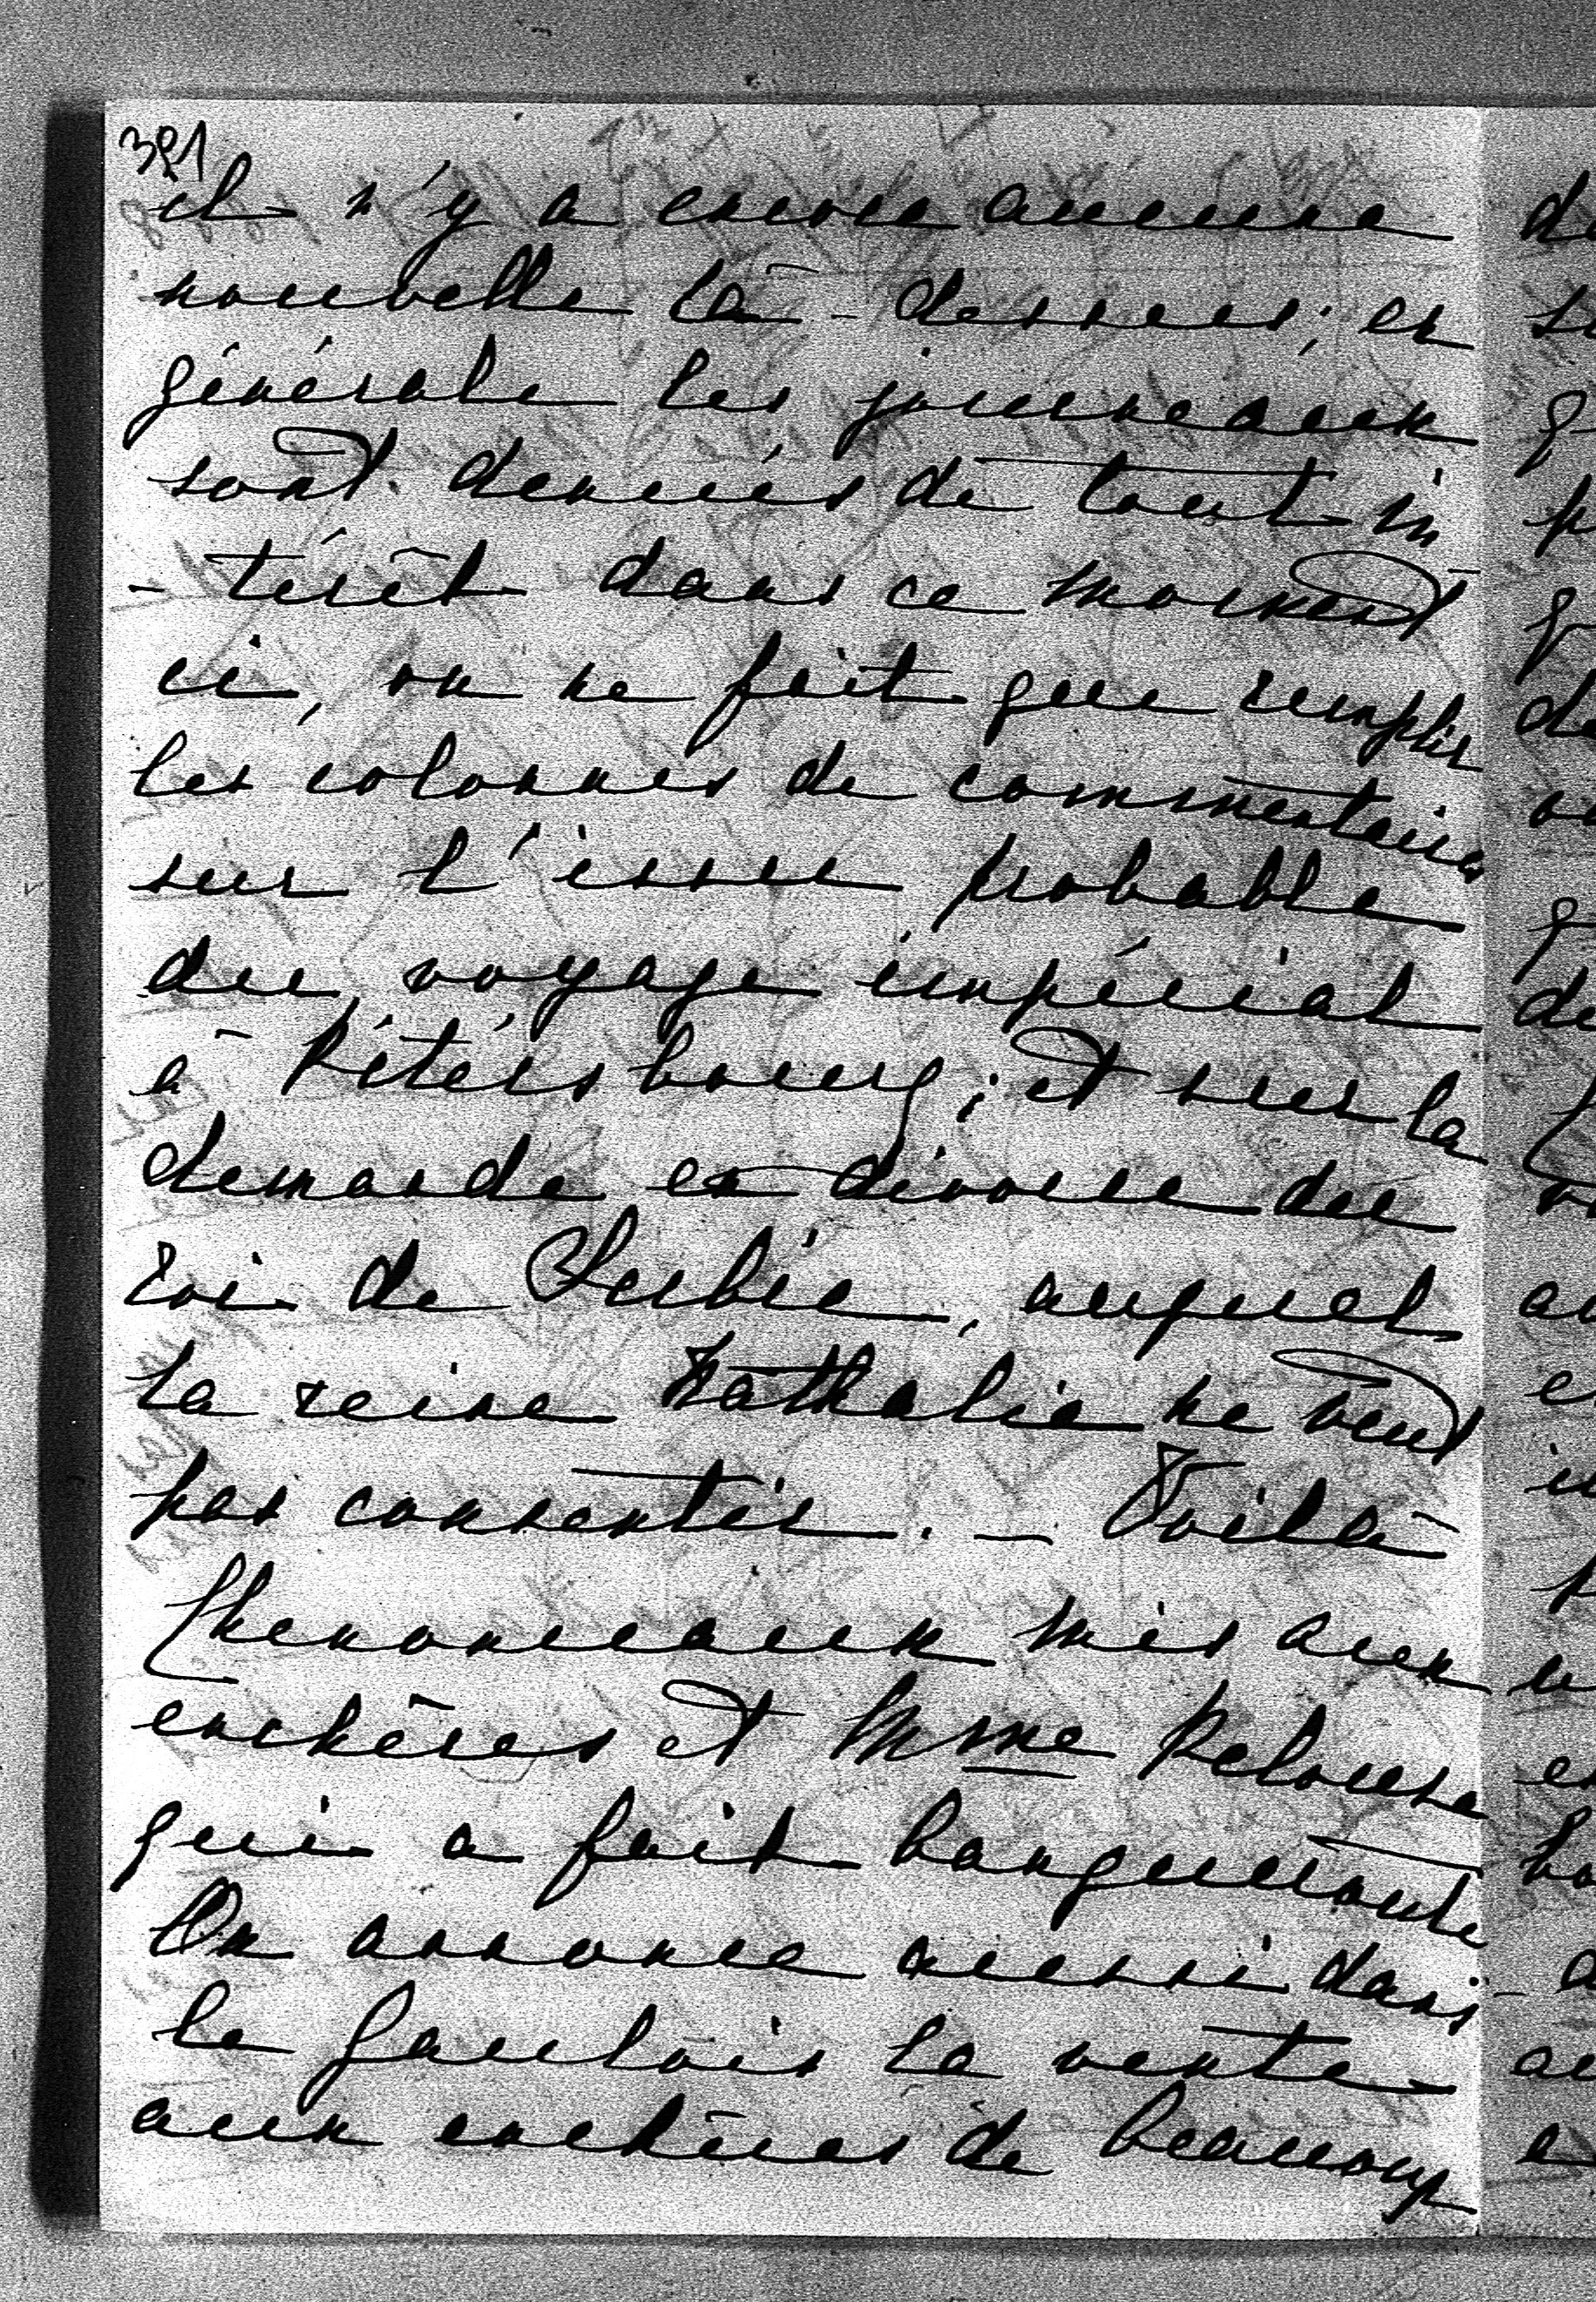 391
il n'y a encore aucune
nouvelle là-dessus; en
générale les journeaux
sont denués de tout in
-térêt dans ce moment
ci, on ne fait que remplir
les colonnes de commentaires
sur l'issue probable
du voyage impérial
à Pétérsbourg; et sur la
demande en divorce du
roi de Serbie, auquel
la reine Nathalie ne veut
pas consentir. — Voilà
Chenonceaux mis aux
enchères et Mme Pelouse
qui a fait banqueroute
On annonce aussi dans
le Gaulois la vente
aux enchères de beaucoup